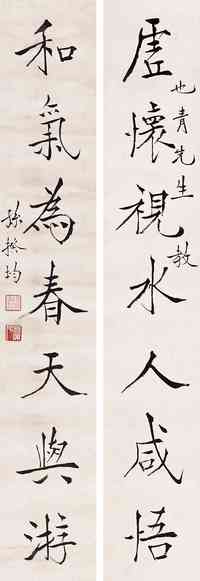 虛懷視水人咸悟
也青先生教
和氣為春天與游
孫揆均